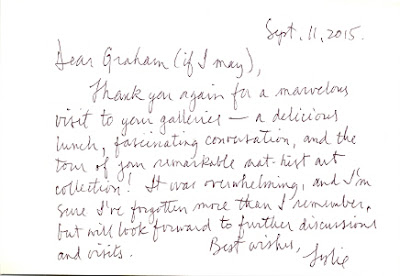 Sept. 11, 2015.
Dear Graham (if I may),
Thank you again for a marvelous
visit to your galleries — a delicious
lunch, fascinating conversation, and the
tour of your remarkable nat. hist art
collection! It was overwhelming, and I'm
sure I've forgotten more than I remember,
but will look forward to further discussions
and visits. Best wishes,
Leslie